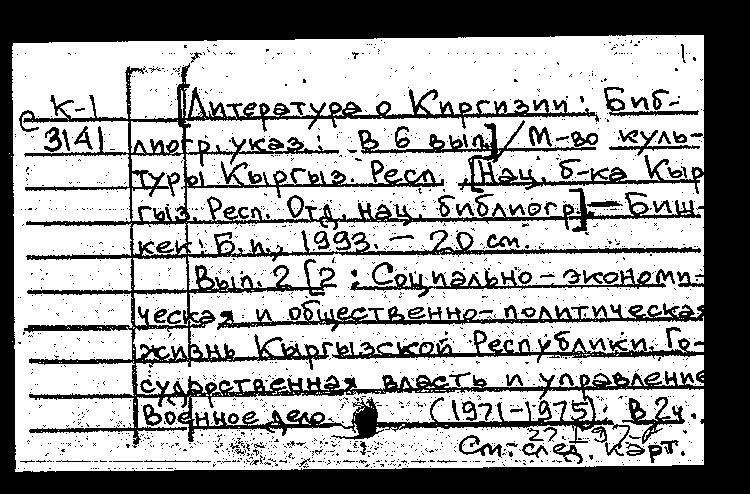 1.
е К-1 [Литература о Киргизии: Биб-
3141 лиогр. указ.: В 6 вып.] / М-во куль-
туры Кыргыз. Респ., [Нац. б-ка Кыр
гыз. Респ. Отд. нац. библиогр.] — Биш-
кек: Б.и., 1993. — 20 см.
Вып. 2 [2: Социально-экономи-
ческая и общественно-политическая
жизнь Кыргызской Республики. Го-
сударственная власть и управление
Военное дело (1971-1975): В 2ч..
См. след. карт.